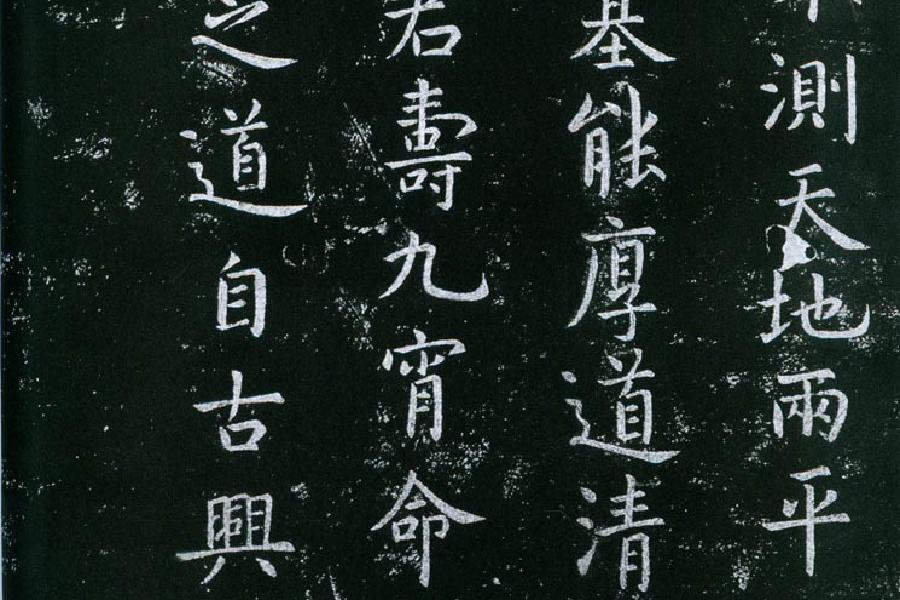 測天地兩平
基能厚道清
壽九宵命
之道自古興